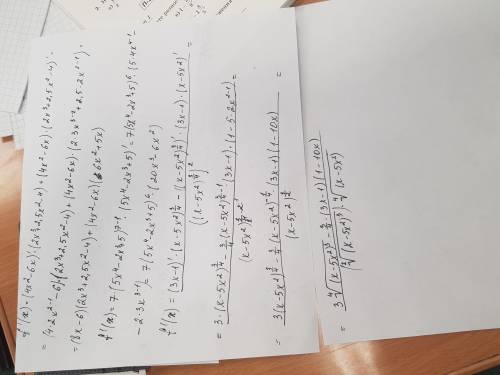 f'(x) = (4x²-6x)'·(2x³+2,5x²-4) + (4x²-6x)·(2x³+2,5x²-4)' =
= (4·2x²⁻¹-6)·(2x³+2,5x²-4) + (4x²-6x)·(2·3x³⁻¹+2,5·2x²⁻¹) =
= (8x-6)(2x³+2,5x²-4) + (4x²-6x)(6x²+5x)
f'(x) = 7·(5x⁴-2x³+5)⁷⁻¹·(5x⁴-2x³+5)' = 7(5x⁴-2x³+5)⁶·(5·4x⁴⁻¹-
-2·3x³⁻¹) = 7(5x⁴-2x³+5)⁶·(20x³-6x²)
f'(x) = ((3x-1)'·(x-5x²)^{3/4} - ((x-5x²)^{3/4})'·(3x-1)·(x-5x²)') / ((x-5x²)^{3/4})² =
= (3·(x-5x²)^{3/4} - 3/4(x-5x²)^{3/4-1}·(3x-1)·(1-5·2x²⁻¹)) / (x-5x²)^{3/4·2} =
= (3(x-5x²)^{3/4} - 3/4(x-5x²)^{-1/4}·(3x-1)(1-10x)) / (x-5x²)^{3/2} =